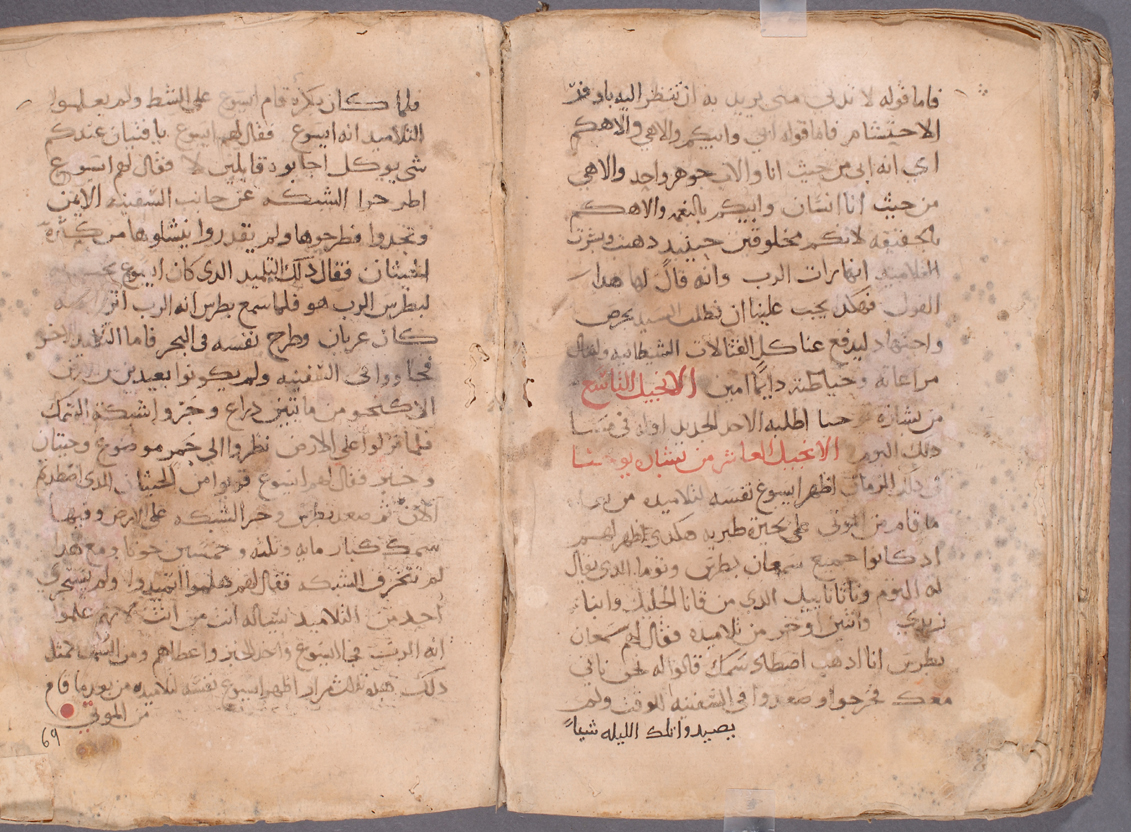 فاما قوله لا تدني مني يريد به ان تنظر اليه باوفر
الاحتشام فاما قوله ابي وابيكم والاهي والاهكم
اي انه ابي من حيث انا والاب جوهر واحد والاهي
من حيث انا انسان وابيكم بالنعمه والاهكم
بالحقيقه لانكم مخلوقين حينيد دهبت وبشرت
التلاميد انها رات الرب وانه قال لها هدا
القول فهكدا يجب علينا ان نطلب السيد بحرص
واجتهاد ليدفع عنا كل القتالات الشيطانيه
مراعاته وحياطته دايما امين الانجيل التاسع
من بشارة اطلبه الاحد الجديد اوله في عشية
دلك اليوم الانجيل العاشر من بشارة يوحنا
في دلك الزمان اظهر ايسوع نفسه لتلاميده من بعد
ما قام من الموتى على بحيرة طبريه هكدى اظهر لهم
اد كانوا جميع سمعان بطرس وتوما الدي يقال
له التوم وناتاناييل الدي من قانا الجليل وابناء
زبدي واثنين اخر من تلاميده فقال لهم سمعان
بطرس انا ادهب اصطاد سمك قالوا له نحن ناتي
معك فخرجوا وصعدوا في السفينه للوقت ولم
يصيدوا تلك الليله شياً
فلما كان بكره قام ايسوع على الشط ولم يعلموا
التلاميد انه ايسوع فقال لهم ايسوع يا فتيان عندكم
شي يوكل اجابوه قايلين لا فقال لهم ايسوع
اطرحوا الشبكه عن جانب السفينه الايمن
وتجدوا فطرحوها ولم يقدروا ينشلوها من كثرة
الحيتان فقال دلك التلميد الدي كان ايسوع يحبه
لبطرس الرب هو فلما سمع بطرس انه الرب اتزر لانه
كان عريان وطرح نفسه في البحر فاما التلاميد الاخر
فجاووا في السفينه ولم يكونوا بعيدين من الارض
الا كنحو من مايتين دراع وجروا شبكة السمك
فلما نزلوا على الارض نظروا الى جمر موضوع وحيتان
وخبز وقال لهم ايسوع قربوا من الحيتان الدي اصطدتم
الان ثم صعد بطرس وجر الشبكه على الارض وفيها
سمك كبار مايه وتلته وخمسين حوتا ومع هدا
لم تتخرق الشبكه فقال لهم هلموا اتغدوا ولم يتجرى
احد من التلاميد يساله انت من انت لانهم علموا
انه الرب فجا ايسوع واخد الخبز واعطاهم ومن السمك مثل
دلك هده تالت مره اظهر ايسوع نفسه لتلاميده من بعد ما قام
من الموتى
69